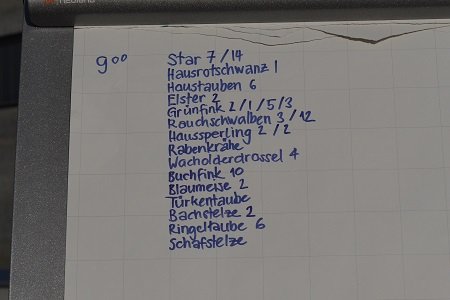 9⁰⁰
Star 7/14
Hausrotschwanz 1
Haustauben 6
Elster 2
Grünfink 2/1/5/3
Rauchschwalben 3/12
Haussperling 2/2
Rabenkrähe
Wacholderdrossel 4
Buchfink 10
Blaumeise 2
Türkentaube
Bachstelze 2
Ringeltaube 6
Schafstelze